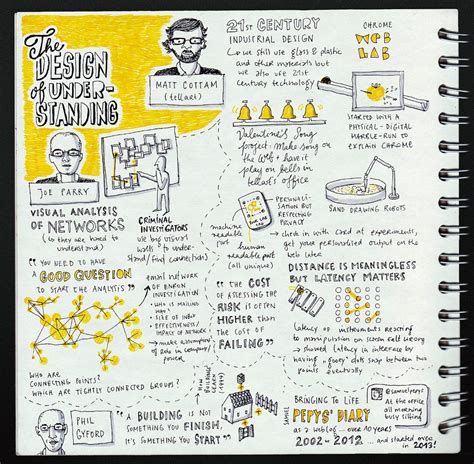 The
DESIGN
of UNDER-
STANDING
MATT COTTAM
(tellart)
JOE PARRY
VISUAL ANALYSIS
of NETWORKS
(→ they are hard to
understand)
CRIMINAL
INVESTIGATORS
use big visual
walls to under-
stand / find connections)
"YOU NEED TO HAVE
A GOOD QUESTION
TO START THE ANALYSIS"
email network
OF ENRON
INVESTIGATION
- WHO IS MAILING
WHO?
- SIZE OF INBOX
- EFFECTIVENESS/
IMPACT OF NETWORK
→ make assumptions
of roles in company
power
WHO ARE
CONNECTING POINTS?
WHICH ARE TIGHTLY CONNECTED GROUPS?
21st CENTURY
INDUSTRIAL DESIGN
→ we still use glass & plastic
and other materials but
we also use 21st
century technology
Valentine's Song
project: Make song on
the web + have it
play on bells in
tellart's office
CHROME
WEB
LAB
STARTED WITH A
PHYSICAL-DIGITAL
MARBLE-RUN TO
EXPLAIN CHROME
SAND DRAWING ROBOTS
PERSONALI-
SATION BUT
RESPECTING
PRIVACY
machine
readable
part
human
readable part
(all unique)
→ check in with card at experiments,
get your personalised output on the
web later
"THE COST
OF ASSESSING THE
RISK IS OFTEN
HIGHER THAN
THE COST OF
FAILING"
DISTANCE IS MEANINGLESS
BUT LATENCY MATTERS
latency of instruments reacting
to manipulation on screen felt wrong
→ showed latency in interface by
having "gooey" dots snap between two
points eventually
PHIL
GYFORD
HOW
BUILDINGS
LEARN
(1994)
"A BUILDING IS NOT
SOMETHING YOU FINISH,
IT'S SOMETHING YOU START"
BRINGING TO LIFE
SAMUEL
PEPYS' DIARY
as a weblog... over 10 years
2002-2012 ... and started over
in 2013!
@samuelpepys
At the office
all morning
busy sitting